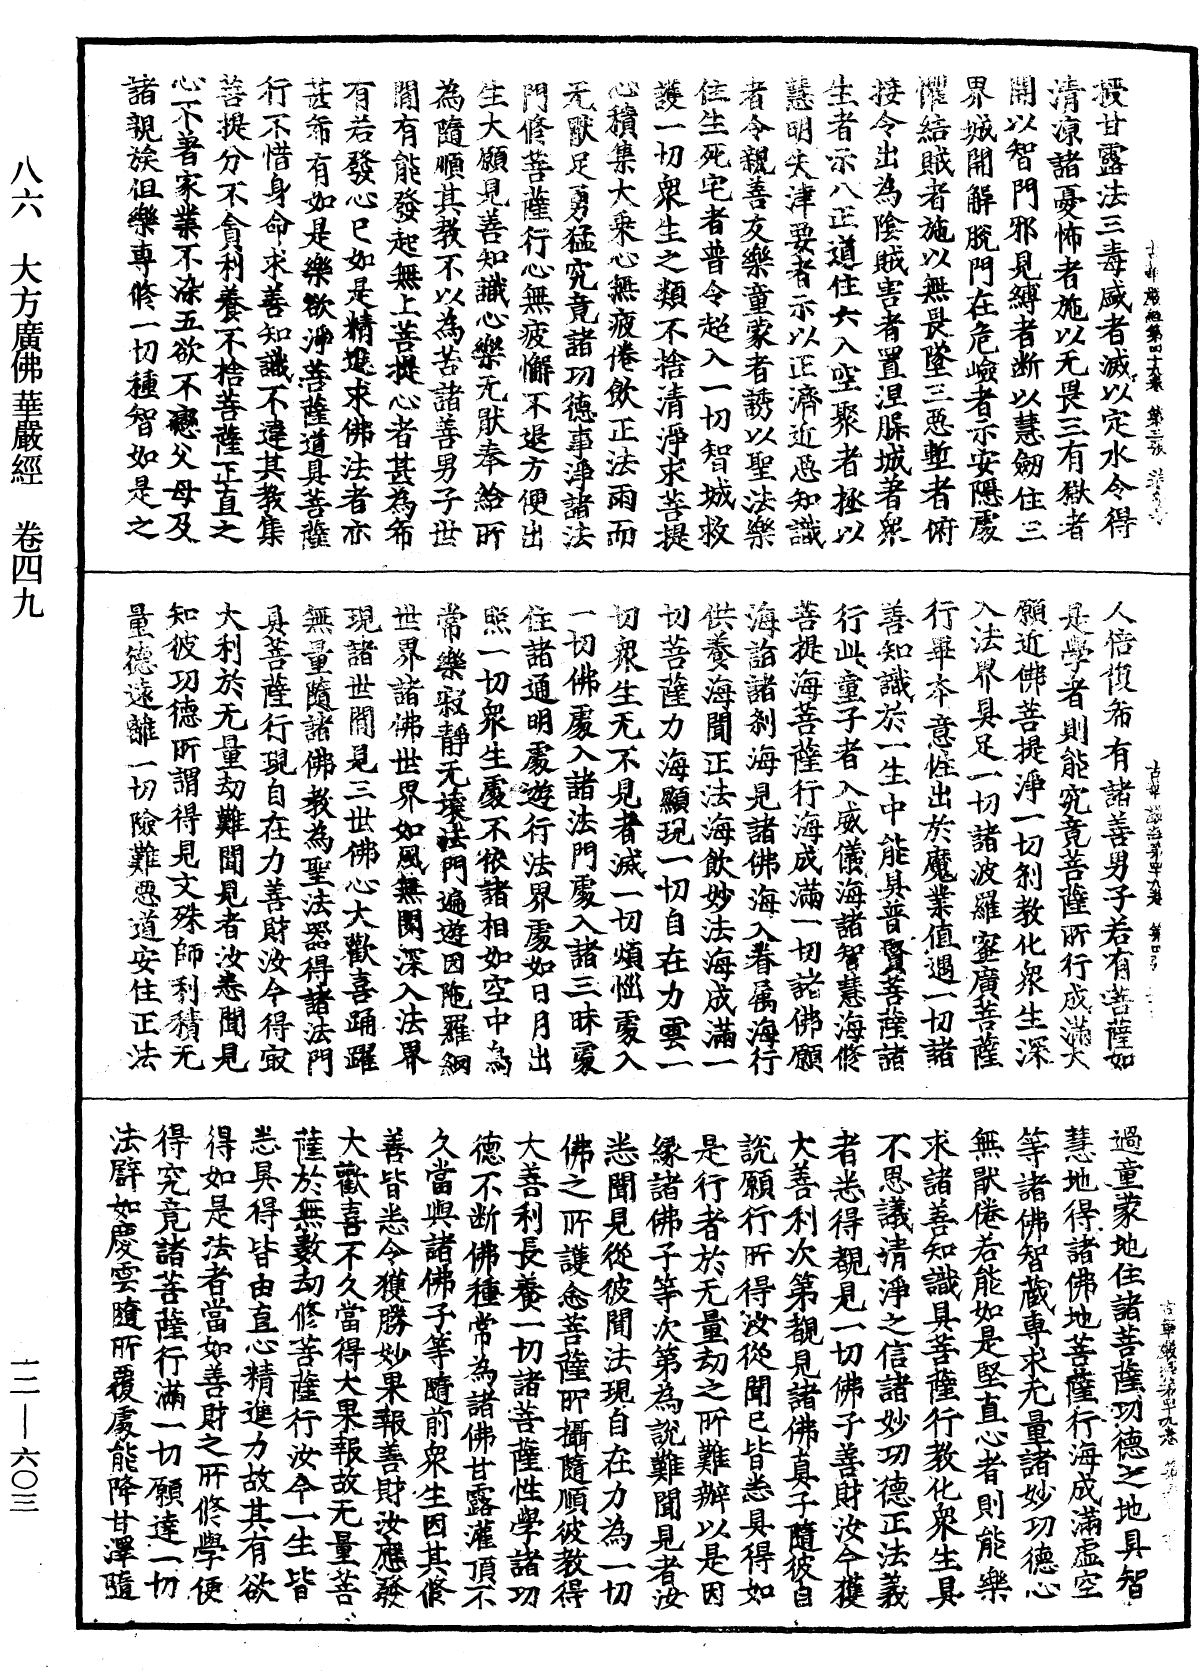 八六　大方廣佛華嚴經　卷四九
一二—六〇三
授甘露法三毒盛者滅以定水令得
清涼諸憂怖者施以无畏三有獄者
開以智門邪見縛者断以慧劒住三
界城開解脫門在危嶮者示安隱處
懼結賊者施以無畏墜三惡塹者俯
接令出為陰賊害者置涅脲城著衆
生者示八正道住六入空聚者拯以
慧明失津要者示以正濟近惡知識
者令親善友樂童蒙者誘以聖法樂
住生死宅者普令超入一切智城救
護一切衆生之類不捨清淨求菩提
心積集大乗心無疲倦飲正法雨而
无猒足勇猛究竟諸功德事淨諸法
門修菩薩行心無疲懈不退方便出
生大願見善知識心樂无猒奉給所
為隨順其教不以為苦諸善男子世
閒有能發起無上菩提心者甚為希
有若發心已如是精進求佛法者亦
甚希有如是樂欲淨菩薩道具菩薩
行不惜身命求善知識不違其教集
菩提分不貪利養不捨菩薩正直之
心不著家業不染五欲不戀父母及
諸親族但樂専修一切種智如是之
人倍復希有諸善男子若有菩薩如
是學者則能究竟菩薩所行成滿大
願近佛菩提淨一切剎教化衆生深
入法界具足一切諸波羅蜜廣菩薩
行畢夲意性出於魔業值遇一切諸
善知識於一生中能具普賢菩薩諸
行此童子者入威儀海諸智慧海修
菩提海菩薩行海成滿一切諸佛願
海詣諸剎海見諸佛海入眷属海行
供養海聞正法海飲妙法海成滿一
切菩薩力海顯現一切自在力雲一
切衆生无不見者滅一切煩惱處入
一切佛處入諸法門處入諸三昧處
住諸通明處遊行法界處如日月出
照一切衆生處不依諸相如空中鳥
常樂寂靜无壞法門遍遊因陁羅網
世界諸佛世界如風無閡深入法界
現諸世間見三世佛心大歡喜踊躍
無量隨諸佛教為聖法器得諸法門
具菩薩行現自在力善財汝今得㝡
大利於无量劫難聞見者汝悉聞見
知彼功德所謂得見文殊師利積无
量德遠離一切險難惡道安住正法
過童蒙地住諸菩薩功德之地具智
慧地得諸佛地菩薩行海成滿虛空
等諸佛智藏専求无量諸妙功德心
無猒倦若能如是堅直心者則能樂
求諸善知識具菩薩行教化衆生具
不思議清淨之信諸妙功德正法義
者悉得覩見一切佛子善財汝今獲
大善利次第覩見諸佛真子隨彼自
說願行所得汝從聞已皆悉具得如
是行者於无量劫之所難辦以是因
緣諸佛子等次第為說難聞見者汝
悉聞見從彼聞法現自在力為一切
佛之所護念菩薩所攝隨順彼教得
大善利長養一切諸菩薩性學諸功
德不断佛種常為諸佛甘露灌頂不
久當與諸佛子等隨前衆生因其修
善皆悉令獲勝妙果報善財汝應發
大歡喜不久當得大果報故无量菩
薩於無數劫修菩薩行汝今一生皆
悉具得皆由直心精進力故其有欲
得如是法者當如善財之所修學便
得究竟諸菩薩行滿一切願達一切
法譬如慶雲隨所覆處能降甘澤隨